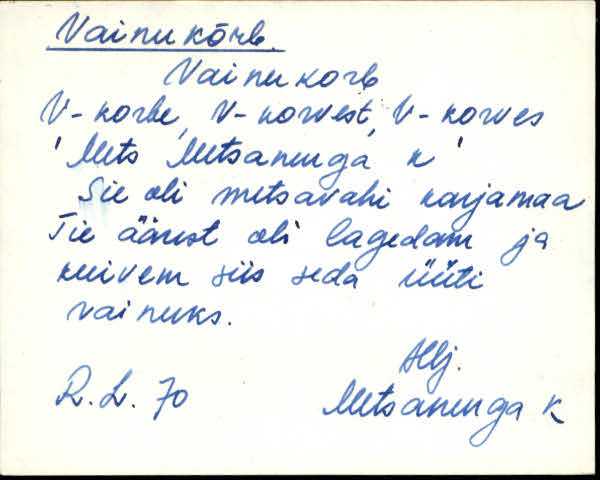 Vainukõrb.
Vainukorb
V-korbe, V-korvest, V-korves
'Mets Metsanurga k'
Sie oli metsavahi karjamaa
Tie äärest oli lagedam ja
kuivem siis seda üüti
vainuks.
Hlj.
R.L. 70
Metsanurga k